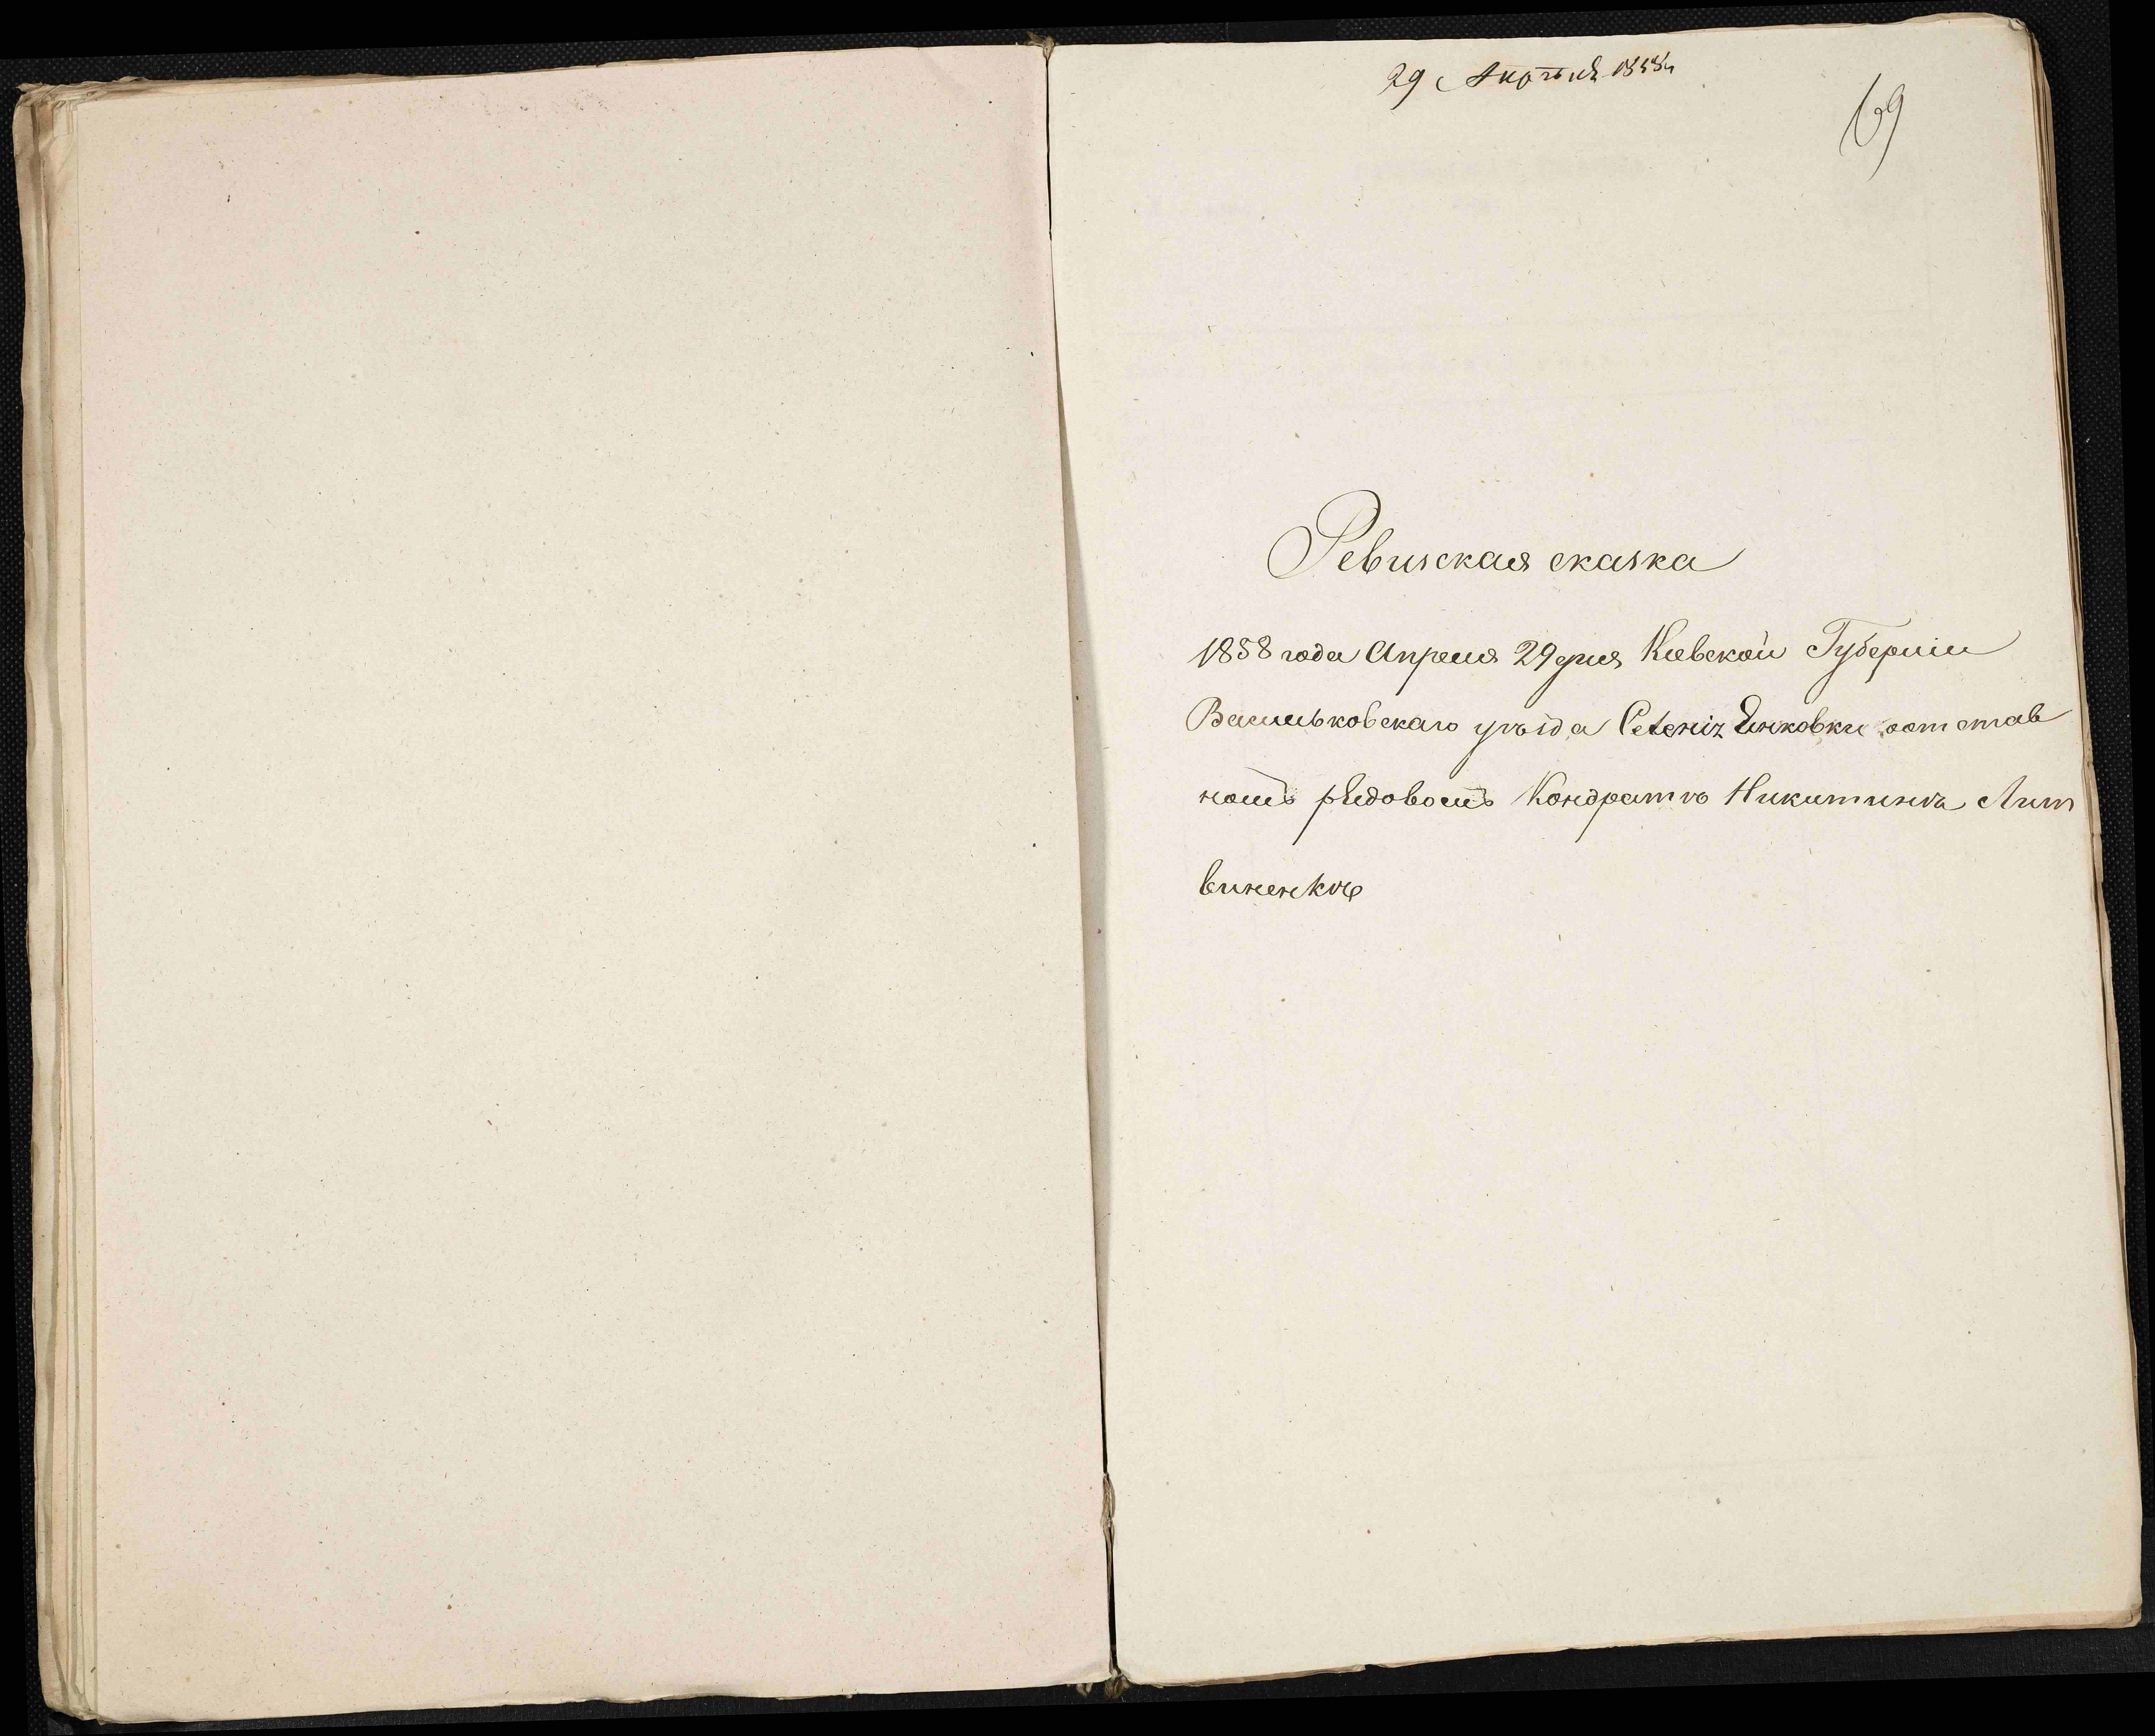 29 Апрѣля 1858 г
69
Ревизская сказка
1858 года Апреля 29 дня Киевской Губернiи
Васильковскаго уѣзда Селенiя Янковки оот став
номъ рядовомъ Кондратѣ Никитинѣ Лит
виненкѣ